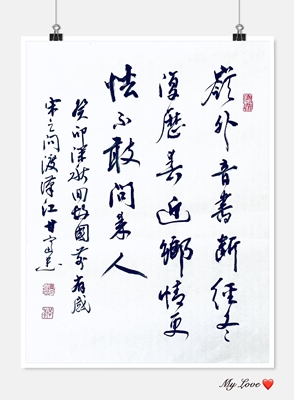 嶺外音書斷經冬
復歷春近鄉情更
怯不敢問來人
癸卯深秋回故國前有感
宋之問渡漢江
My Love ❤️